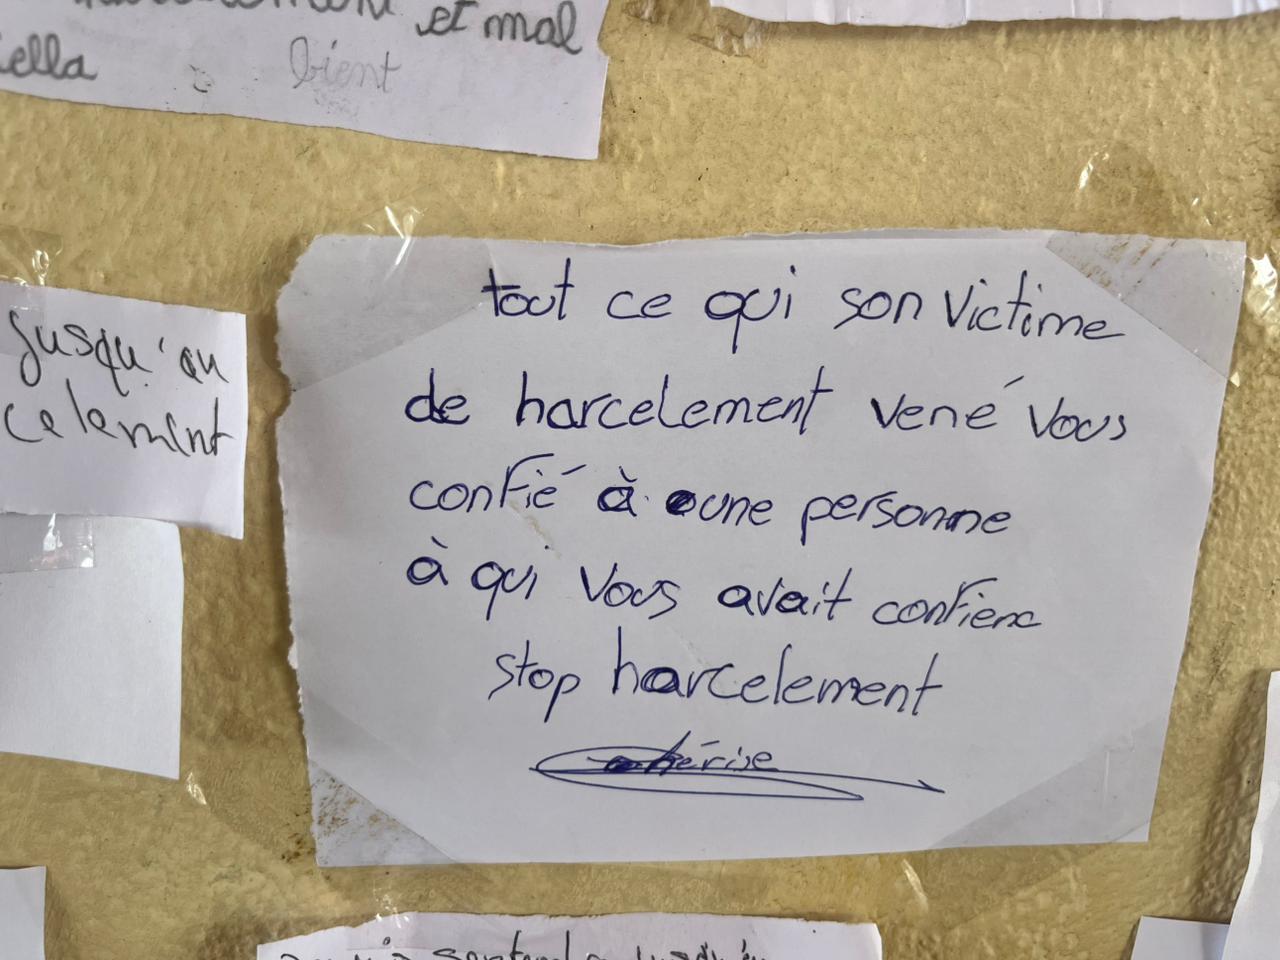 et mal
iella bient
Jusqu'au
celemint
tout ce qui son victime
de harcelement vené vous
confié à une personne
à qui vous avait confienc
stop harcelement